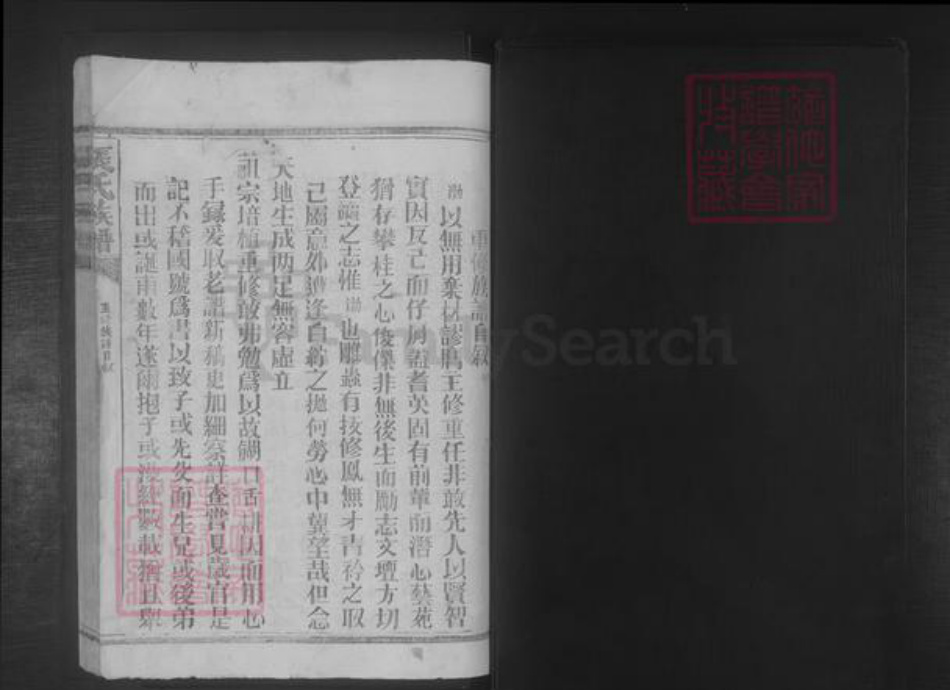 重修族譜自叙
渤以無用棄材謬膺主修重任非敢先人以賢智
實因反己而仔肩蓋耆英固有前輩而潛心藝苑
猶存攀桂之心俊傑非無後生而勵志文壇方切
登瀛之志惟渤也雕蟲有技修鳳無才青衿之取
已屬意外遭逢自紵之拋何勞心中冀望哉但念
天地生成两足無容虛立
祖宗培植重修敢弗勉爲以故餬口舌耕因而用心
手録爰取老譜新稿更加細察詳查嘗見歲官是
記不稽國號爲書以致子或先父而生兄或後弟
而出或誕雨數年遂爾抱子或 數載猶且舉
氏族譜
重修族譜自叙
MySearch